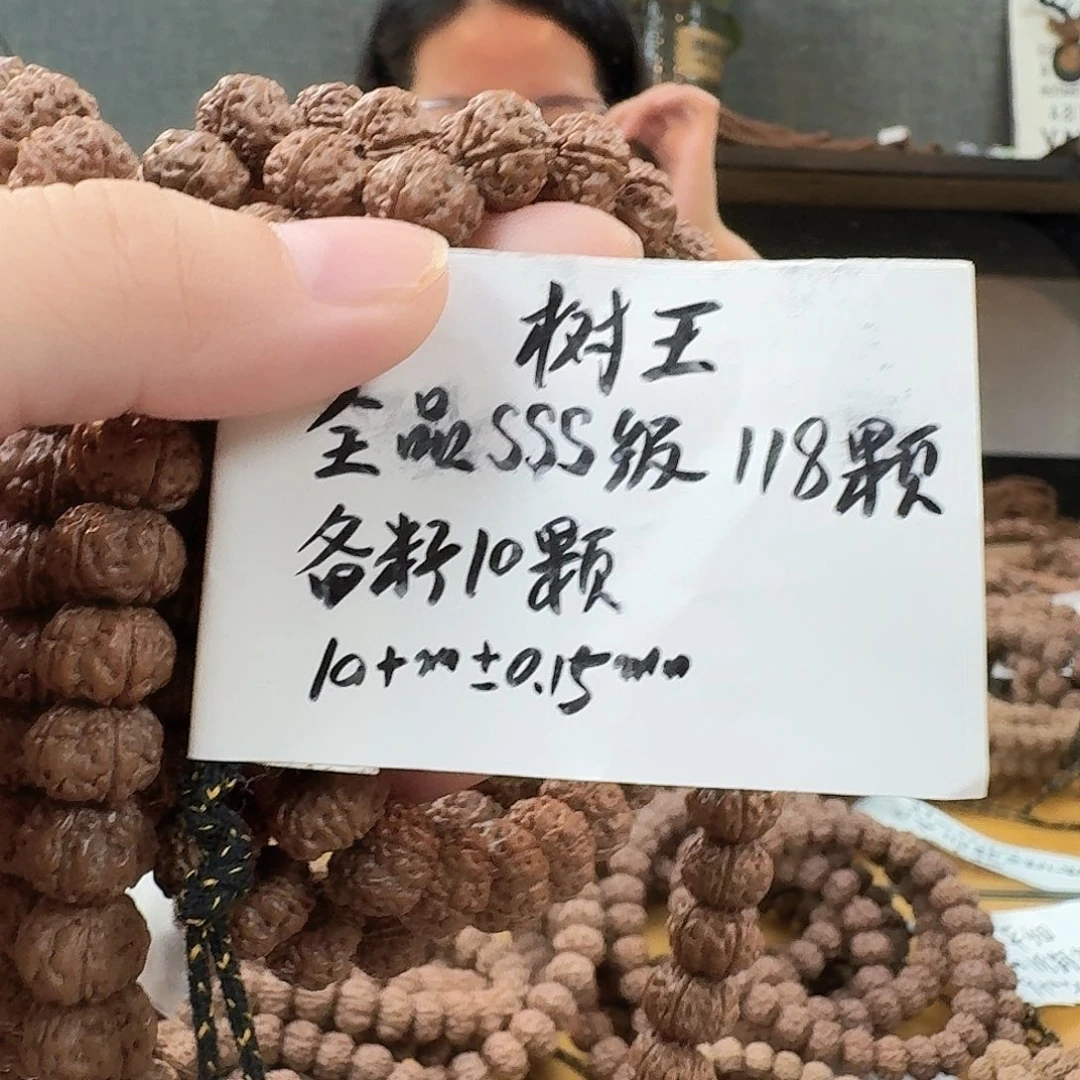 树王
全品SSS级 118颗
备籽10颗
10+m±0.15mm